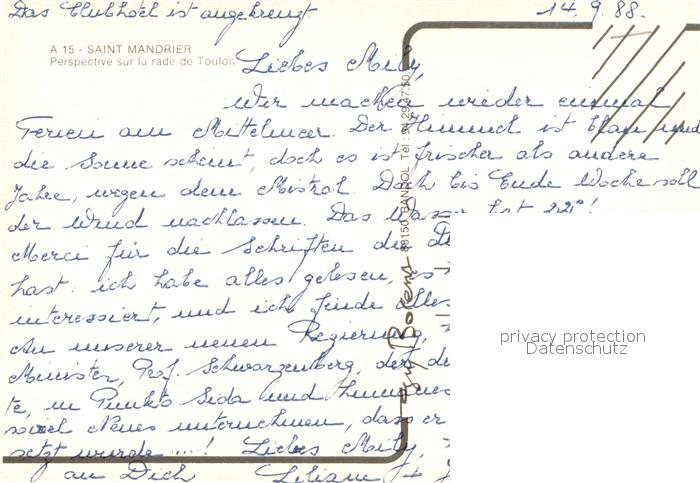 Das Clubhotel ist angekreuzt.
14.9.88.
A 15 - SAINT MANDRIER
Perspective sur la rade de Toulon
Liebes Mily,
Wir machen wieder einmal
Ferien am Mittelmeer. Der Himmel ist blau und
die Sonne scheint, doch es ist frischer als andere
Jahre, wegen dem Mistral. Doch bis Ende Woche soll
der Wind nachlassen. Das Wasser hat 22°!
Merci für die Schriften die D
hast. ich habe alles gelesen, es
interessiert, und ich finde alles
An unserer neuen Regierung,
Minister, Prof. Schwarzenberg, der
te, in Punkto Sida und
soviel Neues unternehmen, dass er
setzt wurde ....! Liebes Mily,
an Dich Liliane +
83150 BANDOL Tél : 94.29.37.50
privacy protection
Datenschutz